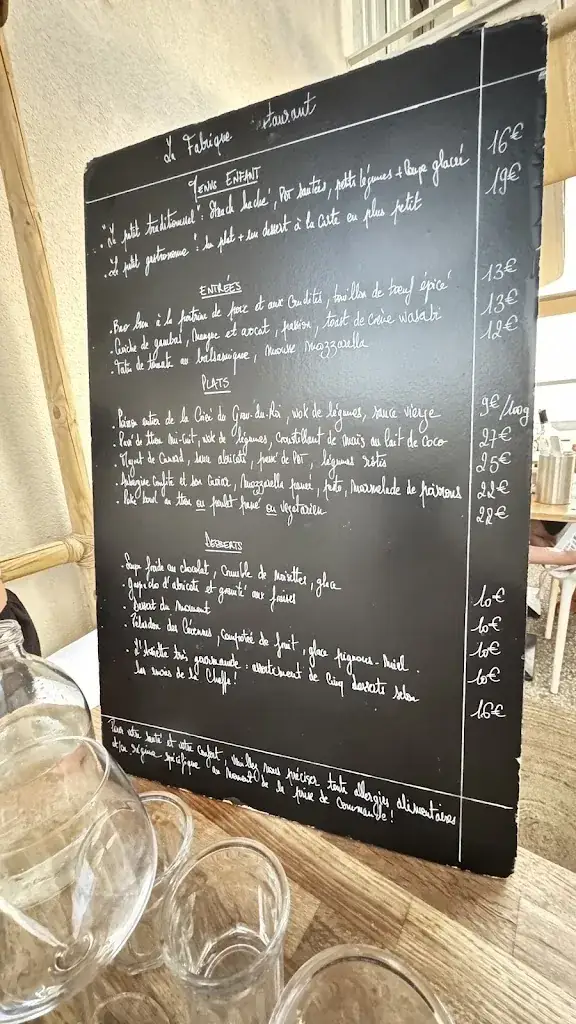 La Fabrique staurant
Menus ENFANT
. "Le petit traditionnel": Steack haché, PDT sautées, petits légumes + Coupe glacée 16€
. "Le petit gastronome": un plat + un dessert à la carte en plus petit 19€
ENTRÉES
. Bao bun à la poitrine de porc et aux crudités, bouillon de bœuf épicé 13€
. Ceviche de gambas, Mangue et avocat, passion, toast de crème wasabi 13€
. Tatin de tomate au balsamique, mousse mozzarella 12€
PLATS
. Poisson entier de la Criée du Grau-du-Roi, wok de légumes, sauce vierge 9€/100g
. Pavé de thon mi-cuit, wok de légumes, croustillant de maïs au lait de coco 27€
. Magret de Canard, sauce abricots, purée de PDT, légumes rôtis 25€
. Aubergine confite et son caviar, mozzarella fumée, pesto, marmelade de poivrons 22€
. Poké bowl au thon ou poulet pané ou végétarien 22€
DESSERTS
. Soupe froide au chocolat, crumble de noisettes, glace 10€
. Gaspacho d'abricots et granité aux fraises 10€
. Dessert du moment 10€
. Pélardon des Cévennes, compotée de fruit, glace pignons-miel 10€
. L'assiette très gourmande: assortiment de cinq desserts selon 16€
les envies de la Cheffe!
Pour votre santé et votre confort, veuillez nous préciser toute allergies alimentaires
et/ou régime spécifique au moment de la prise de commande!